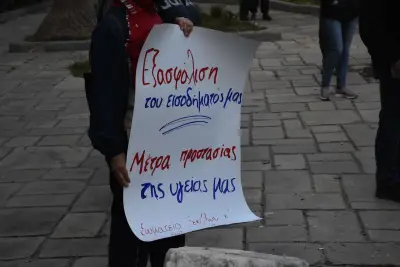 Εξασφάλιση
του εισοδήματός μας
Μέτρα προστασίας
της υγείας μας